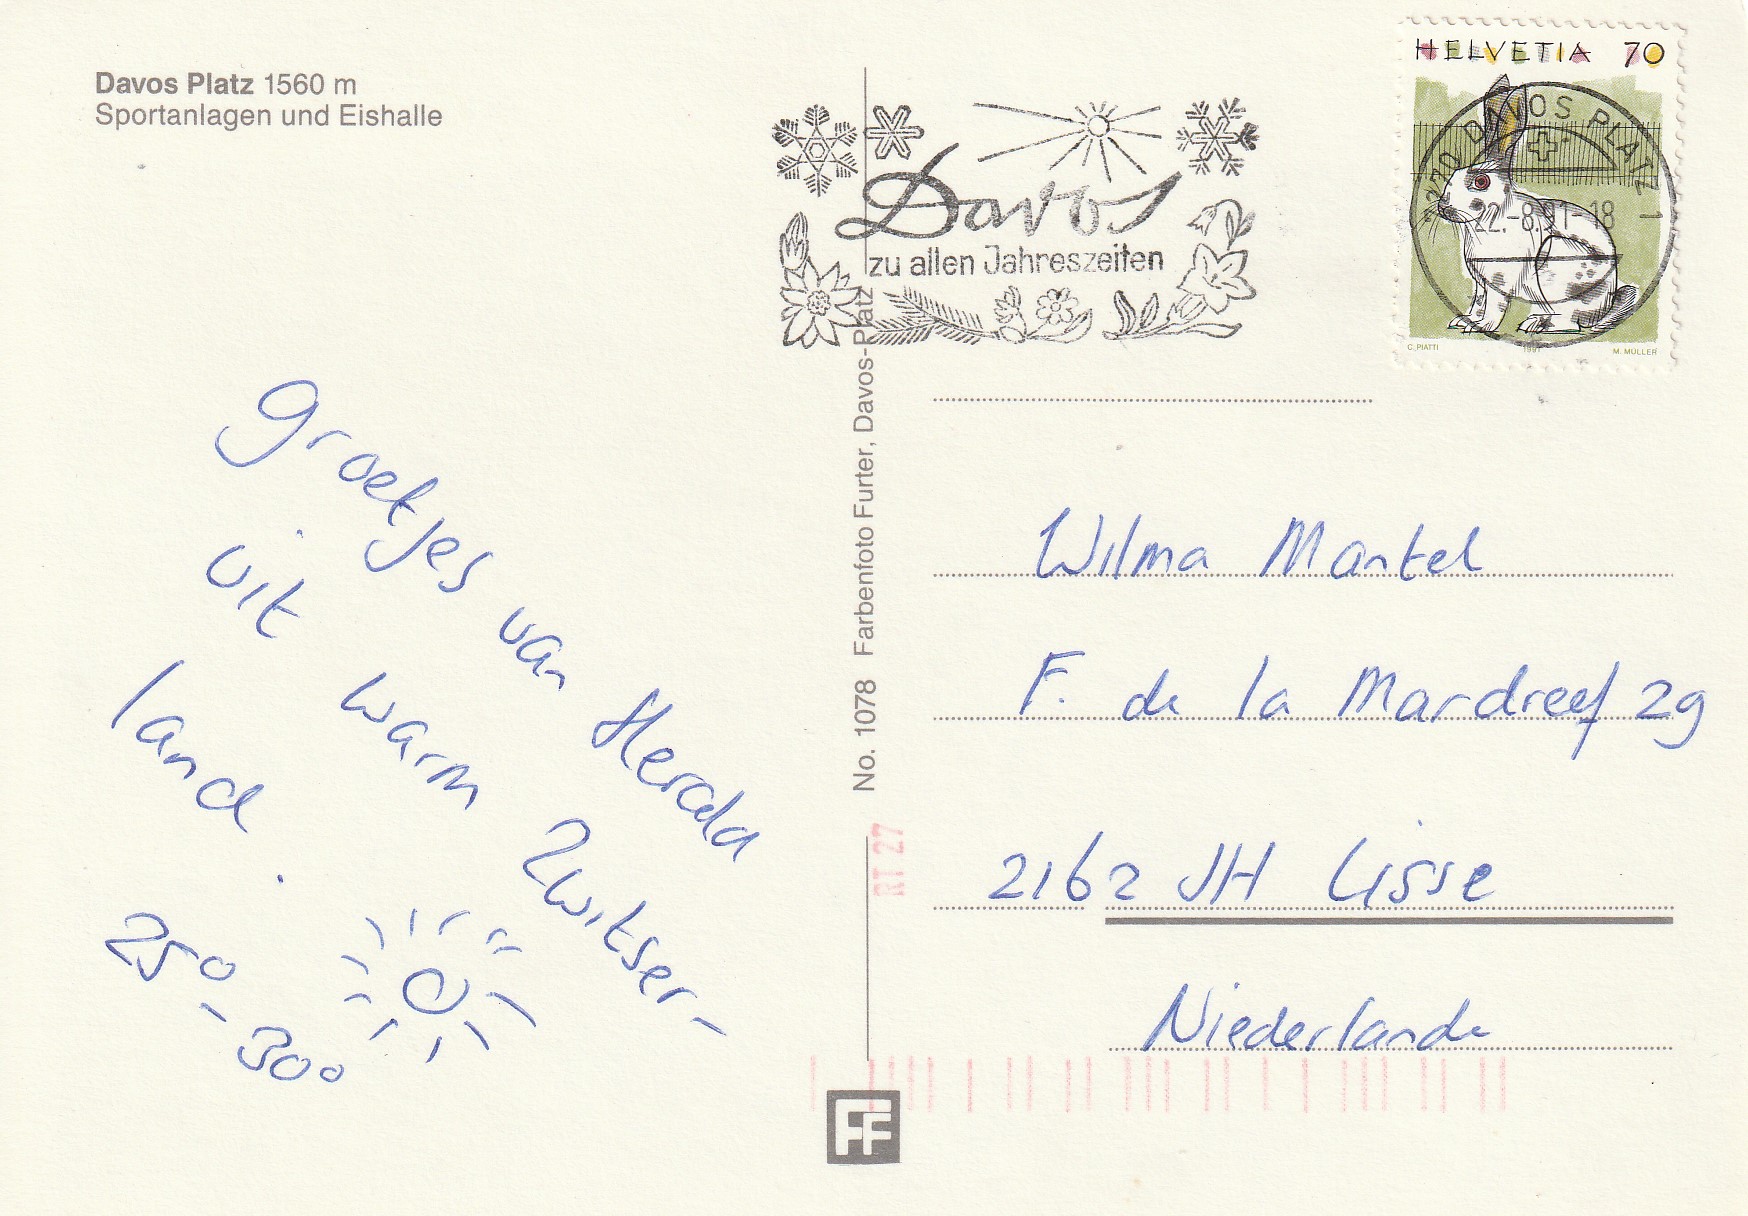 Davos Platz 1560 m
Sportanlagen und Eishalle
HELVETIA 70
7270 DAVOS PLATZ 1
22.-8.91-18
C. PIATTI 1991 M. MÜLLER
Davos
zu allen Jahreszeiten
groetjes van Heralda
uit warm Zwitser-
land.
25° - 30°
No. 1078 Farbenfoto Furter, Davos-Platz
RT 27
Wilma Mantel
F. de la Mardreef 29
2162 JH Lisse
Niederlande
FF